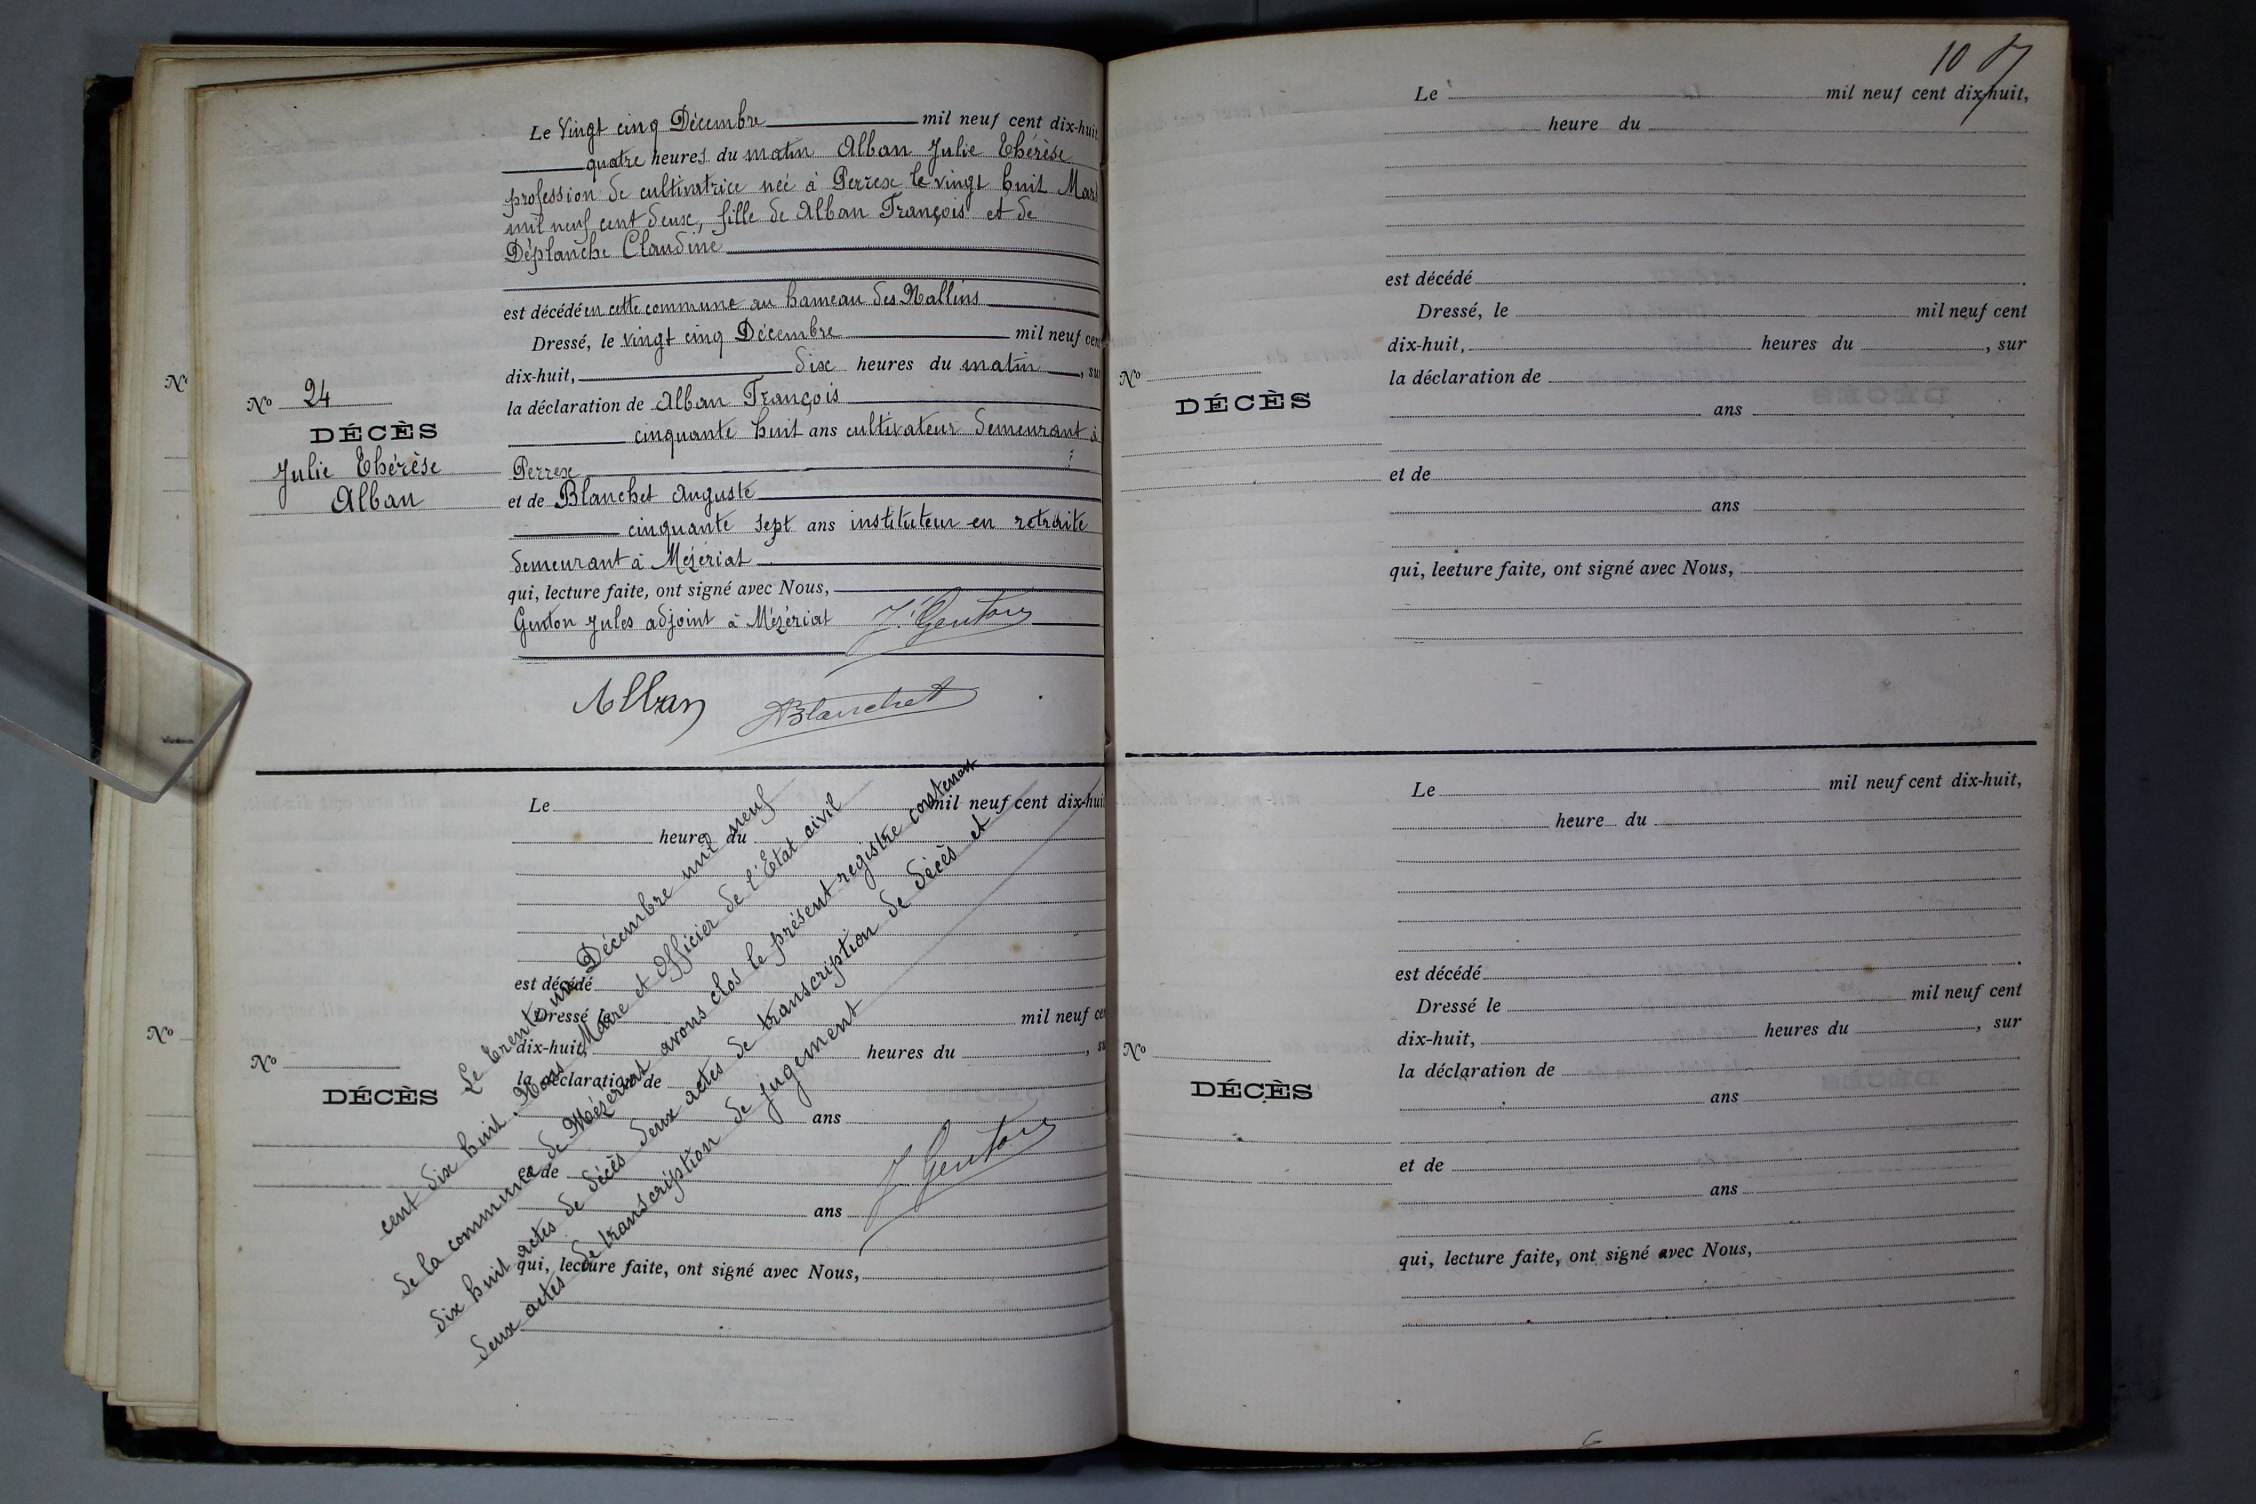 Le Vingt cinq Décembre mil neuf cent dix-huit
quatre heures du matin Alban Julie Thérèse
profession de cultivatrice née à Perrex le vingt huit Mars
mil neuf cent deux, fille de Alban François et de
Déplanche Claudine
est décédé en cette commune au hameau des Mallins
Dressé, le vingt cinq Décembre mil neuf cent
dix-huit, dix heures du matin, sur
la déclaration de Alban François
cinquante huit ans cultivateur demeurant à
Perrex
et de Blanchet Auguste
cinquante sept ans instituteur en retraite
demeurant à Mézériat
qui, lecture faite, ont signé avec Nous,
Genton Jules adjoint à Mézériat J. Genton
Alban ABlanchet
No
No 24
DÉCÈS
Julie Thérèse
Alban
Le mil neuf cent dix-huit
heure du
est décédé
Dressé le mil neuf cent
dix-huit, heures du , su
la déclaration de
ans
et de
ans
qui, lecture faite, ont signé avec Nous,
No
No
DÉCÈS
Le trente un Décembre mil neuf
cent dix huit, Nous Maire et Officier de l'Etat civil
de la commune de Mézériat avons clos le présent registre contenant
dix huit actes de décès deux actes de transcription de décès et
deux actes de transcription de jugement
J Genton
10
Le mil neuf cent dix-huit,
heure du
est décédé
Dressé, le mil neuf cent
dix-huit, heures du , sur
la déclaration de
ans
et de
ans
qui, lecture faite, ont signé avec Nous,
No
DÉCÈS
Le mil neuf cent dix-huit,
heure du
est décédé
Dressé le mil neuf cent
dix-huit, heures du , sur
la déclaration de
ans
et de
ans
qui, lecture faite, ont signé avec Nous,
No
DÉCÈS